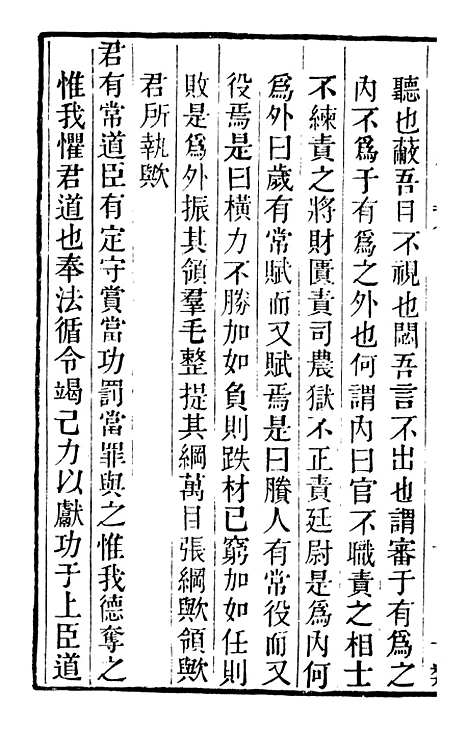 聽也蔽吾目不視也閟吾言不出也謂審于有爲之
內不爲于有爲之外也何謂內曰官不職責之相士
不練責之將財匱責司農獄不正責廷尉是爲內何
爲外曰歲有常賦而又賦焉是曰賸人有常役而又
役焉是曰橫力不勝加如負則跌材已窮加如任則
敗是爲外振其領羣毛整提其綱萬目張綱歟領歟
君所執歟
君有常道臣有定守賞當功罰當罪與之惟我德奪之
惟我懼君道也奉法循令竭己力以獻功于上臣道